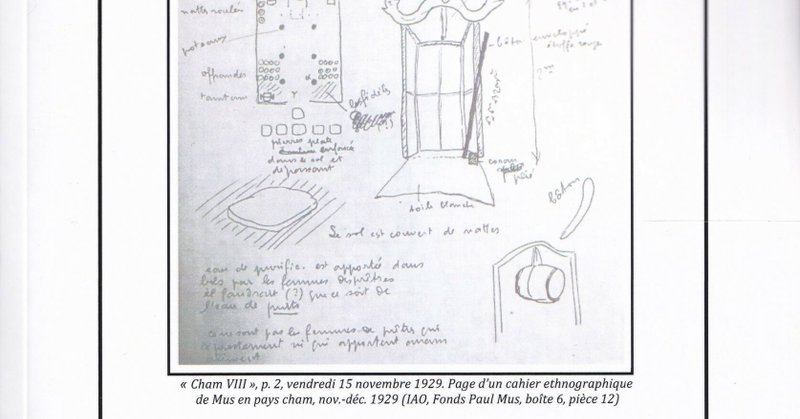 nattes roulées
poteaux
offrandes
tamtam
les fidèles
pierres plate
enfoncée
dans le sol et
dépassant
bâton enveloppé
étoffe rouge
2m
coran
plié
toile blanche
bâton
Le sol est couvert de nattes
eau de purific. est apportée dans
bols par les femmes des prêtres
il faudrait (?) que ce soit de
l'eau de puits
ce ne sont pas les femmes de prêtres qui
ni qui apportent
« Cham VIII », p. 2, vendredi 15 novembre 1929. Page d'un cahier ethnographique
de Mus en pays cham, nov.-déc. 1929 (IAO, Fonds Paul Mus, boîte 6, pièce 12)